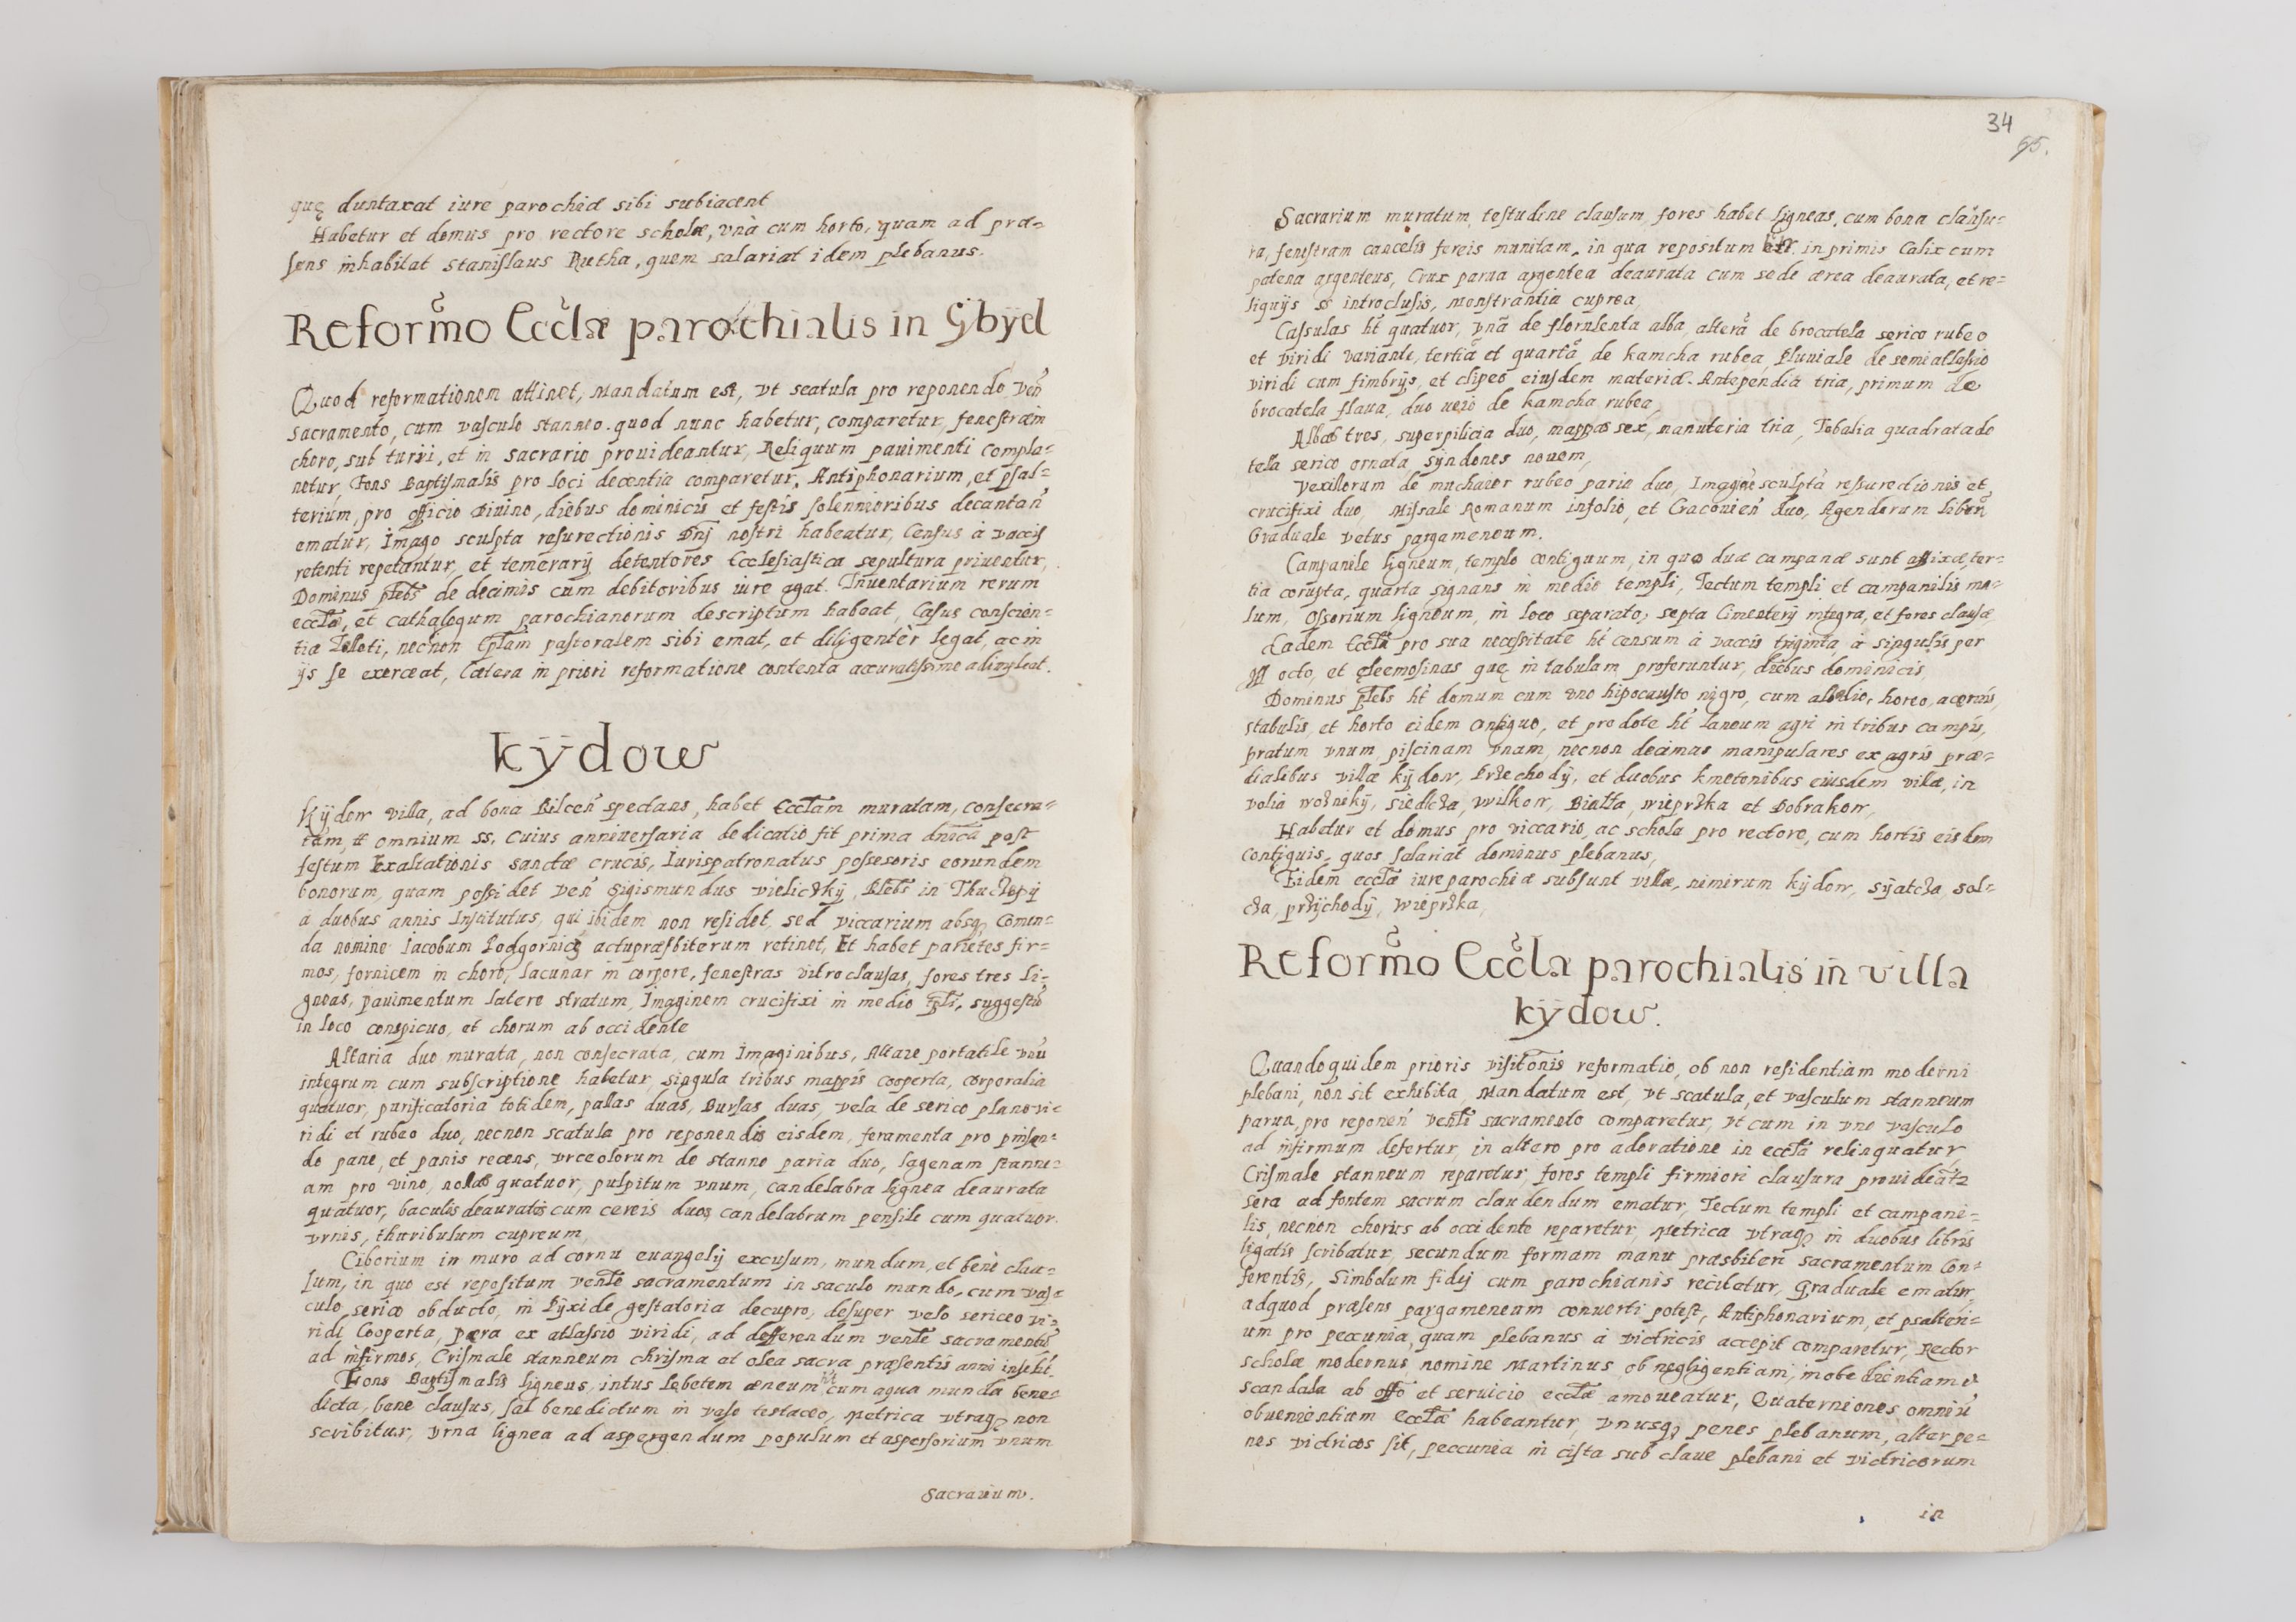 quę duntaxat iure parochiæ sibi subiacent
Habetur et domus pro rectore scholæ, vnà cum horto, quam ad præ=
sens inhabitat Stanislaus Rutha, quem salariat idem plebanus.
Reformo Eccla parochialis in Gÿbÿel
Quod reformationem attinet, Mandatum est, vt scatula pro reponendo Ven
Sacramento, cum vasculo stanneo quod nunc habetur, comparetur, fenestræ in
choro, sub turri, et in sacrario prouideantur, Reliquum pauimenti compla=
netur, Fons Baptismalis pro loci decentia comparetur, Antiphonarium, et psal=
terium, pro officio Diuino, diebus dominicis et festis solennioribus decantan
ematur, Imago sculpta resurectionis Dnj nostri habeatur, Census à vaccis
retenti repetantur, et temerarÿ detentores Ecclesiastica sepultura priuentur,
Dominus plebs de decimis cum debitoribus iure agat. Inuentarium rerum
eccłæ, et cathalogum parochianorum descriptum habeat, Casus conscien=
tiæ Tolleti, necnon Eplam pastoralem sibi emat, et diligenter legat, ac in
ÿs se exerceat, Cætera in priori reformatione contenta accuratissime adimpleat.
Kÿdow
Kÿdow villa, ad bona Pilcen spectans, habet Ecclam muratam, consecra=
tam, tt omnium SS. Cuius anniuersaria dedicatio fit prima dnica post
festum Exaltationis sanctæ crucis, Iurispatronatus possesoris eorundem
bonorum, quam possidet Ven Sigismundus Vieliczkÿ, Plebs in
a duobus annis Institutus, qui ibidem non residet, sed viccarium absq Comen=
da nomine Iacobum Podgornicz actupræsbiterum retinet, Et habet parietes fir=
mos, fornicem in choro, lacunar in corpore, fenestras vitro clausas, fores tres li=
gneas, pauimentum latere stratum, Imaginem crucifixi in medio tpli, suggestu
in loco conspicuo, et chorum ab occidente
Altaria duo murata, non consecrata, cum Imaginibus, Altare portatile vnu
integrum cum subscriptione habetur, singula tribus mappis cooperta, corporalia
quatuor, purificatoria totidem, pallas duas, Bursas duas, vela de serico plano vi=
ridi et rubeo duo, necnon scatula pro reponendis eisdem, feramenta pro pinsen=
do pane, et panis recens, vrceolorum de stanno paria duo, lagenam stanne=
am pro vino, nollas quatuor, pulpitum vnum, candelabra lignea deaurata
quatuor, baculis deauratis cum cereis duos, candelabrum pensile cum quatuor
vrnis, thuribulum cupreum,
Ciborium in muro ad cornu euangelÿ excusum, mundum, et bene clau=
sum, in quo est repositum Vente sacramentum in saculo mundo, cum vas=
culo, serico obducto, in Pÿxide gestatoria de cupro, desuper velo sericeo vi=
ridi Cooperta, pera ex atlassio viridi, ad defferendum Vente sacramentu
ad infirmos, Crismale stanneum chrisma et olea sacra præsentis anni
Fons Baptismalis ligneus, intus lebetem æneum ht cum aqua munda bene=
dicta, bene clausus, sal benedictum in vase testaceo, Metrica vtraq non
scribitur, vrna lignea ad aspergendum populum et aspersorium vnum
Sacrarium.
34
65.
Sacrarium muratum, testudine clausum, fores habet ligneas, cum bona clausu=
ra, fenestram cancelis fereis munitam, in qua repositum in primis Calix cum
patena argenteus, Crux parua argentea deaurata cum sede ærea deaurata, et re=
liquÿs SS introclusis, Monstrantia cuprea,
Cassulas ht quatuor, vna de florulenta alba, altera de brocatela serico rubeo
et viridi variante, tertia et quarta de kamcha rubea, Pluuiale de semiatlassio
viridi cum fimbrÿs, et clipeo eiusdem materiæ. Antependia tria, primum de
brocatela flaua, duo uero de kamcha rubea,
Albas tres, superpilicia duo, mappas sex, manuteria tria, Tobalia quadrata de
tela serico ornata, sÿndones nouem,
Vexillorum de muchaier rubeo paria duo, Imagines sculpta ressurectionis et
crucifixi duo, Missale Romanum infolio, et Cracouien duo, Agendorum libri
Graduale vetus pargameneum.
Campanile ligneum, templo contiguum, in quo duæ campanæ sunt affixæ, ter=
tia corupta, quarta signans in medio templi, Tectum templi et campanilis ma=
lum, Ossorium ligneum, in loco separato, septa Cimeterÿ integra, et fores clausæ
Eadem Eccła pro sua necessitate ht censum à vaccis triginta, à singulis per
octo, et ęleemosinas quę in tabulam proferuntur, diebus dominicis,
Dominus plebs ht domum cum vno hipocausto nigro, cum alkierio, horeo, aceruis,
stabulis, et horto eidem contiguo, et pro dote ht laneum agri in tribus campis,
pratum vnum, piscinam vnam, necnon decimas manipulares ex agris præ=
dialibus villæ Kÿdow, Przechodÿ, et duobus kmetonibus eiusdem villæ, in
volia Wożnikÿ, Siedlcza, Wilkow, Biatta, Wieprzka et Dobrakow,
Habetur et domus pro viccario, ac schola pro rectore, cum hortis eisdem
contiguis, quos salariat dominus plebanus,
Eidem eccłæ iure parochiæ subsunt villæ, nimirum Kÿdow, Sÿatcza, Sol=
cza, przÿchodÿ, Wieprzka,
Reformo Eccla parochialis in villa
Kÿdow.
Quandoquidem prioris visitonis reformatio, ob non residentiam moderni
plebani, non sit exhibita, Mandatum est, vt scatula, et vasculum stanneum
parua, pro reponen venti sacramento comparetur, vt cum in vno vasculo
ad infirmum defertur, in altero pro adoratione in eccła relinquatur,
Crismale stanneum reparetur, fores templi firmiori clausura prouideatr
Sera ad fontem sacrum claudendum ematur, Tectum templi et campani=
lis, necnon chorus ab occidente reparetur, Metrica vtraq in duobus libris
ligatis scribatur, secundum formam manu præsbiteri sacramentum Con=
ferentis, Simbolum fidej cum parochianis recitetur, Graduale ematur,
adquod præsens pargameneum conuerti potest, Antiphonarium, et psalteri=
um pro pecunia, quam plebanus à victricis accepit comparetur, Rector
scholæ modernus, nomine Martinus, ob negligentiam, inobedientiam &
scandala ab offo et seruicio eccłæ amoueatur, Quaterniones omniu
obuenientium Eccłæ habeantur, vnusq penes plebanum, alter pe=
nes victricos sit, peccunia in cista sub claue plebani et victricorum
in